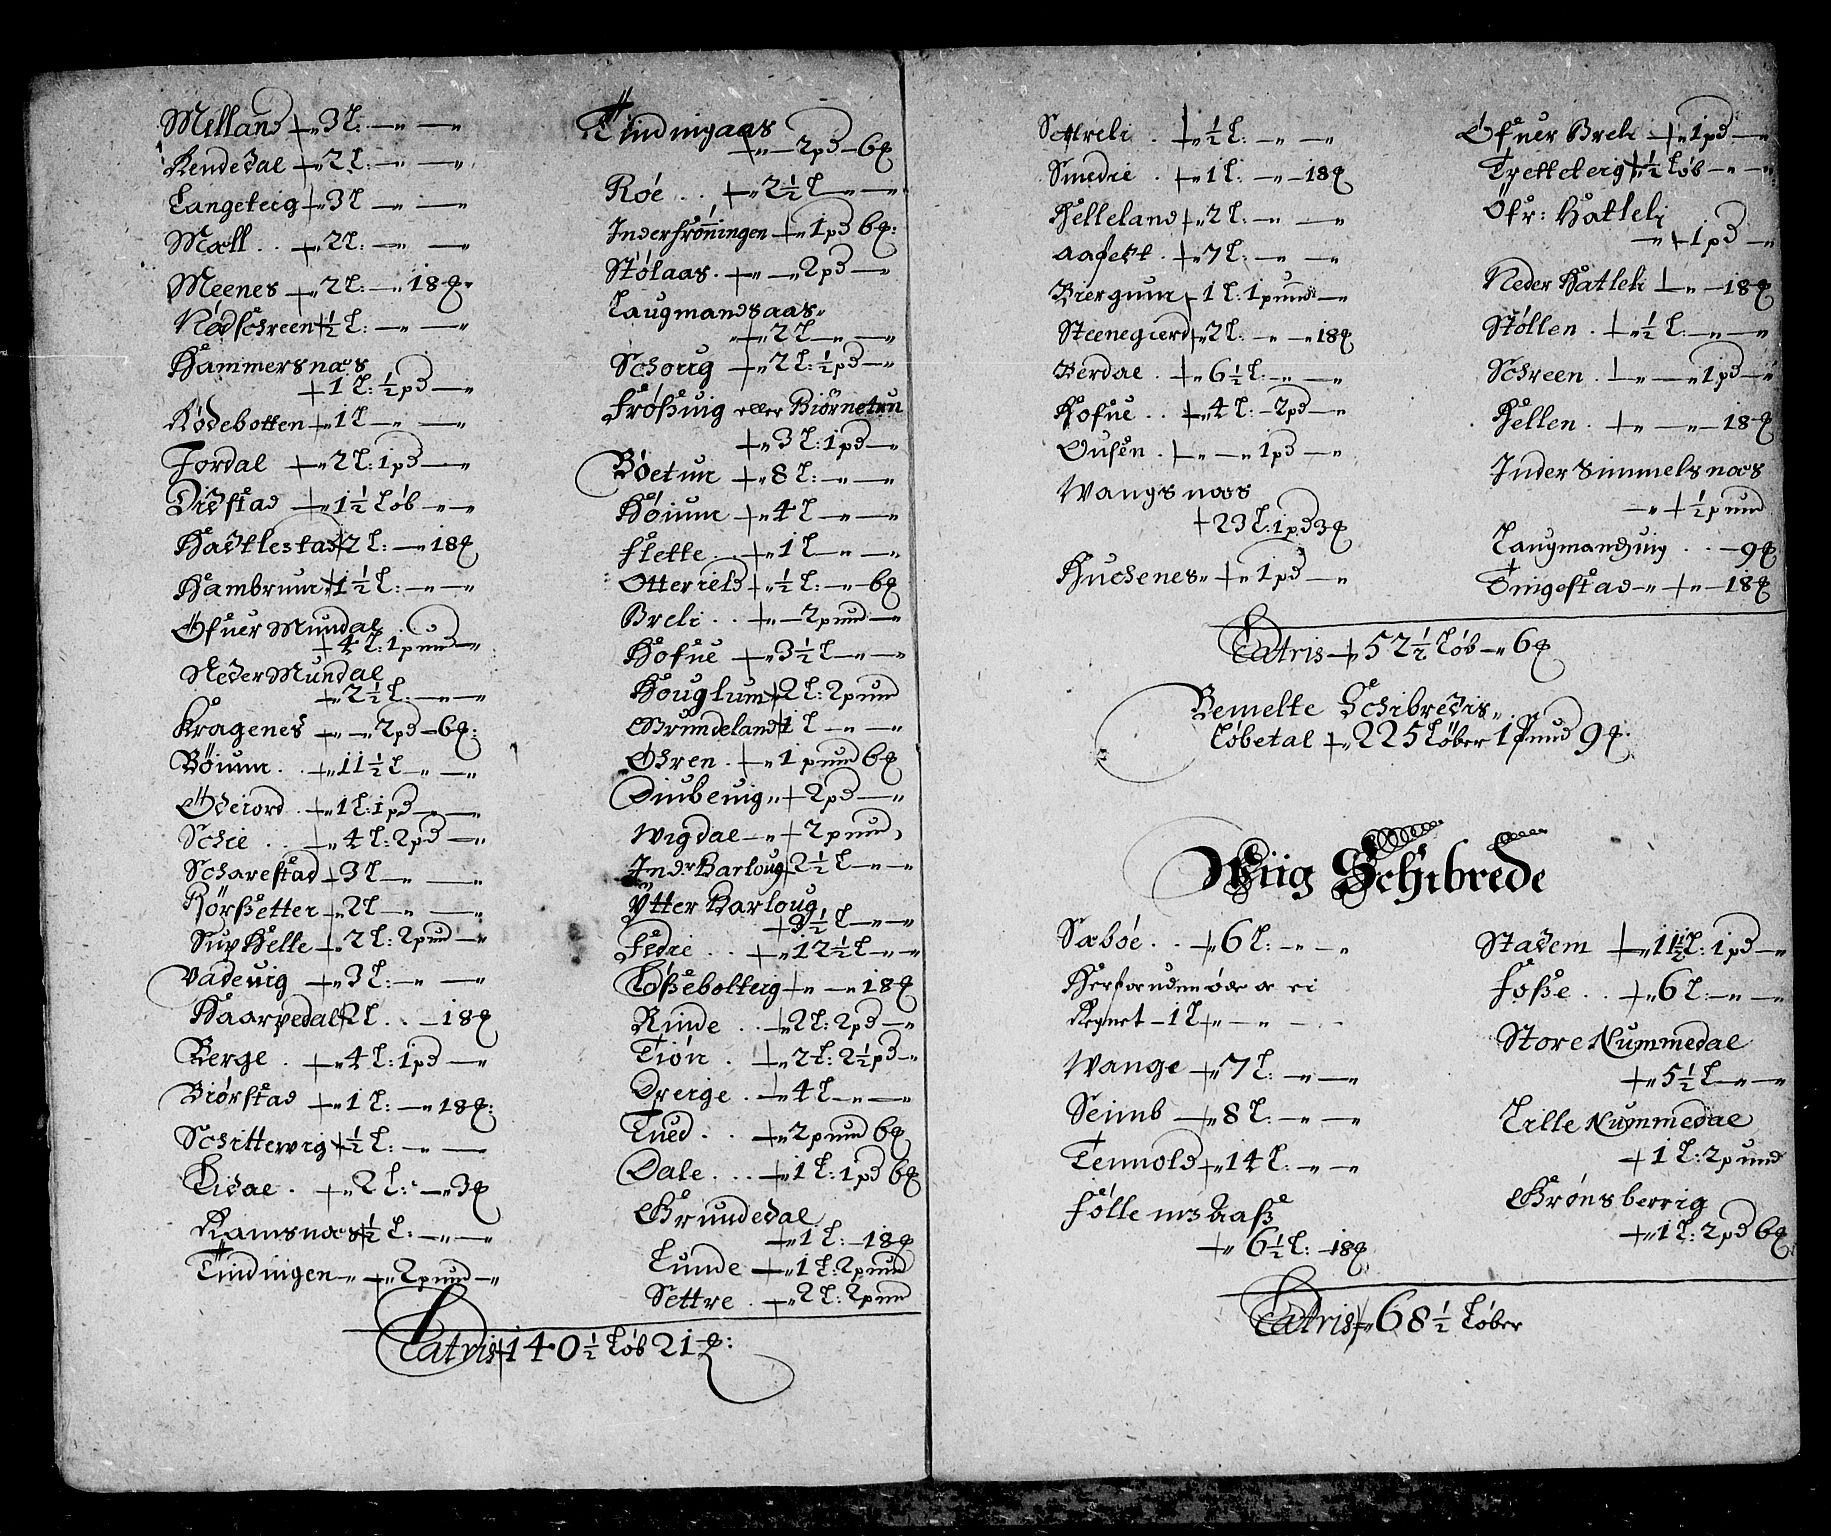 Melland +„ 3 l: —„ —„
Rendedal +„ 2 l: —„ —„
Langeteig +„ 3 l —„ —„
Mæll . . +„ 2 l: —„ —„
Meenes +„ 2 l: —„ 18 ꝗ„
Nødschreen +„ ½ l: —„ —„
Hammersnæs
+ 1 l: ½ pd —„
Rødebotten +„ 1 l —„ —„
Jordal +„ 2 l: 1 pd —„
Distad +„ 1½ løb —„
Hadtlestad + 2 l: —„ 18 ꝗ
Hambrum + 1½ l: —„ —„
Øfuer Mundal
+ 4 l: 1 pund —„
Neder Mundal
+„ 2½ l: —„ —„
Kragenes +„ —„ 2 pd — 6 ꝗ:
Bøium . . +„ 11½ l —„ —„
Ødeiord . +„ 1 l: 1 pd —„
Schie . . +„ 4 l: 2 pd —„
Scharestad + 3 l —„ —„
Rørsetter +„ 2 l —„ —„
Suphelle +„ 2 l: 2 pund —„
Vadeuig +„ 3 l: —„ —„
Haarpedal + 2 l . . — 18 ꝗ
Berge . +„ 4 l: 1 pd —„
Biørstad +„ 1 l: —„ 18 ꝗ:
Schittewig + ½ l: —„ —„
Lidae . +„ 2 l: —„ 3 ꝗ
Ramsnæs + ½ l: —„ —„
Tindingen —„ +„ 2 pund —„
Latris + 140½ løb 21 ꝗ:
Tindingaas
+„ — 2 pd — 6 ꝗ
Røe . . +„ 2½ l —„ —„
Inderfrønningen +„ 1 pd 6 ꝗ:
Stølaas . +„ —„ 2 pd —„
Laugmandsaas„
+„ 2 l —„ —„
Schoug +„ 2 l: ½ pd —„
Frøsuig eller Biørnetun
+„ 3 l: 1 pd —„
Bøetun +„ 8 l: —„ —„
Høium +„ 4 l —„ —„
Flette . +„ 1 l —„ —„
Otterield +„ ½ l: —„ 6 ꝗ
Breli . . +„ — 2 pund —„
Hofue +„ 3½ l —„ —„
Houglum + 2 l: 2 pund
Grundeland + 1 l —„ —„
Øhren . +„ 1 pund 6 ꝗ
Diubeuig„ + 2 pd —„
Wigdal —„ + 2 pund„
Indr Harloug + 2½ l —„ —„
Ytter Harloug
+ 3½ l —„ —„
Fedie . . +„ 12½ l —„ —„
Løsseboltteig +„ —„ 18 ꝗ
Rinde . . +„ 2 l: 2 pd —„
Tiøn . +„ 2 l: 2½ pd —„
Dreige . +„ 4 l —„ —„
Tued . . +„ 2 pund 6 ꝗ
Dale . . . +„ 1 l: 1 pd 6 ꝗ
Grundedal
+„ 1 l: — 18 ꝗ
Lunde +„ 1 l: 2 pund
Settre . +„ 2 l: 2 pund
Settreli . +„ ½ l: —„ —„
Smedie . +„ 1 l: —„ — 18 ꝗ
Helleland +„ 2 l: —„ —„
Aafett . +„ 7 l: —„ —„
Biergum + 1 l: 1 pund —„
Steenegierd + 2 l: —„ —„ 18 ꝗ
Berdae . +„ 6½ l: —„ —„
Hofue . . +„ 4 l: — 2 pd —„
Ousen . +„ —„ 1 pd —„
Wangsnæs
+ 23 l: 1 pd 3 ꝗ
Huchenes„ +„ 1 pd —„
Øfuer Breli +„ 1 pd —„
Tretteteig + ½ løb —„
Ofr: Hatleli
—„ + 1 pd —„
Neder Hatleli +„ — 18 ꝗ
Støllen . +„ ½ l: —„ —„
Schreen . +„ —„ 1 pd —„
Hellen . +„ —„ — 18 ꝗ
Inder Simmelsnæs
—„ + ½ pund
Laugmandzuig . . — 9 ꝗ
Tingestad —„ +„ — 18 ꝗ
Latris +„ 52½ løb —„ 6 ꝗ
Bemelte Schibredis„
Løbetal +„ 225 Løber 1 Pund 9 ꝗ.
Wiig Schibrede
Sæbøe . . +„ 6 l: —„ —„
Herforuden øde er ei
Regnet — 1 l +„ —„
Wange +„ 7 l: —„ —„
Seimb +„ 8 l: —„ —„
Tennold +„ 14 l: —„ —„
Føllemsaas
+„ 6½ l: — 18 ꝗ
Stadem +„ 11½ l: 1 pd —„
Fosse . . +„ 6 l: —„ —„
Store Nummedal
+„ 5½ l —„ —„
Lille Nummedal
+ 1 l: 2 pund
Grønsberrig
+„ 1 l: 2 pd 6 ꝗ
Latris +„ 68½ Løber